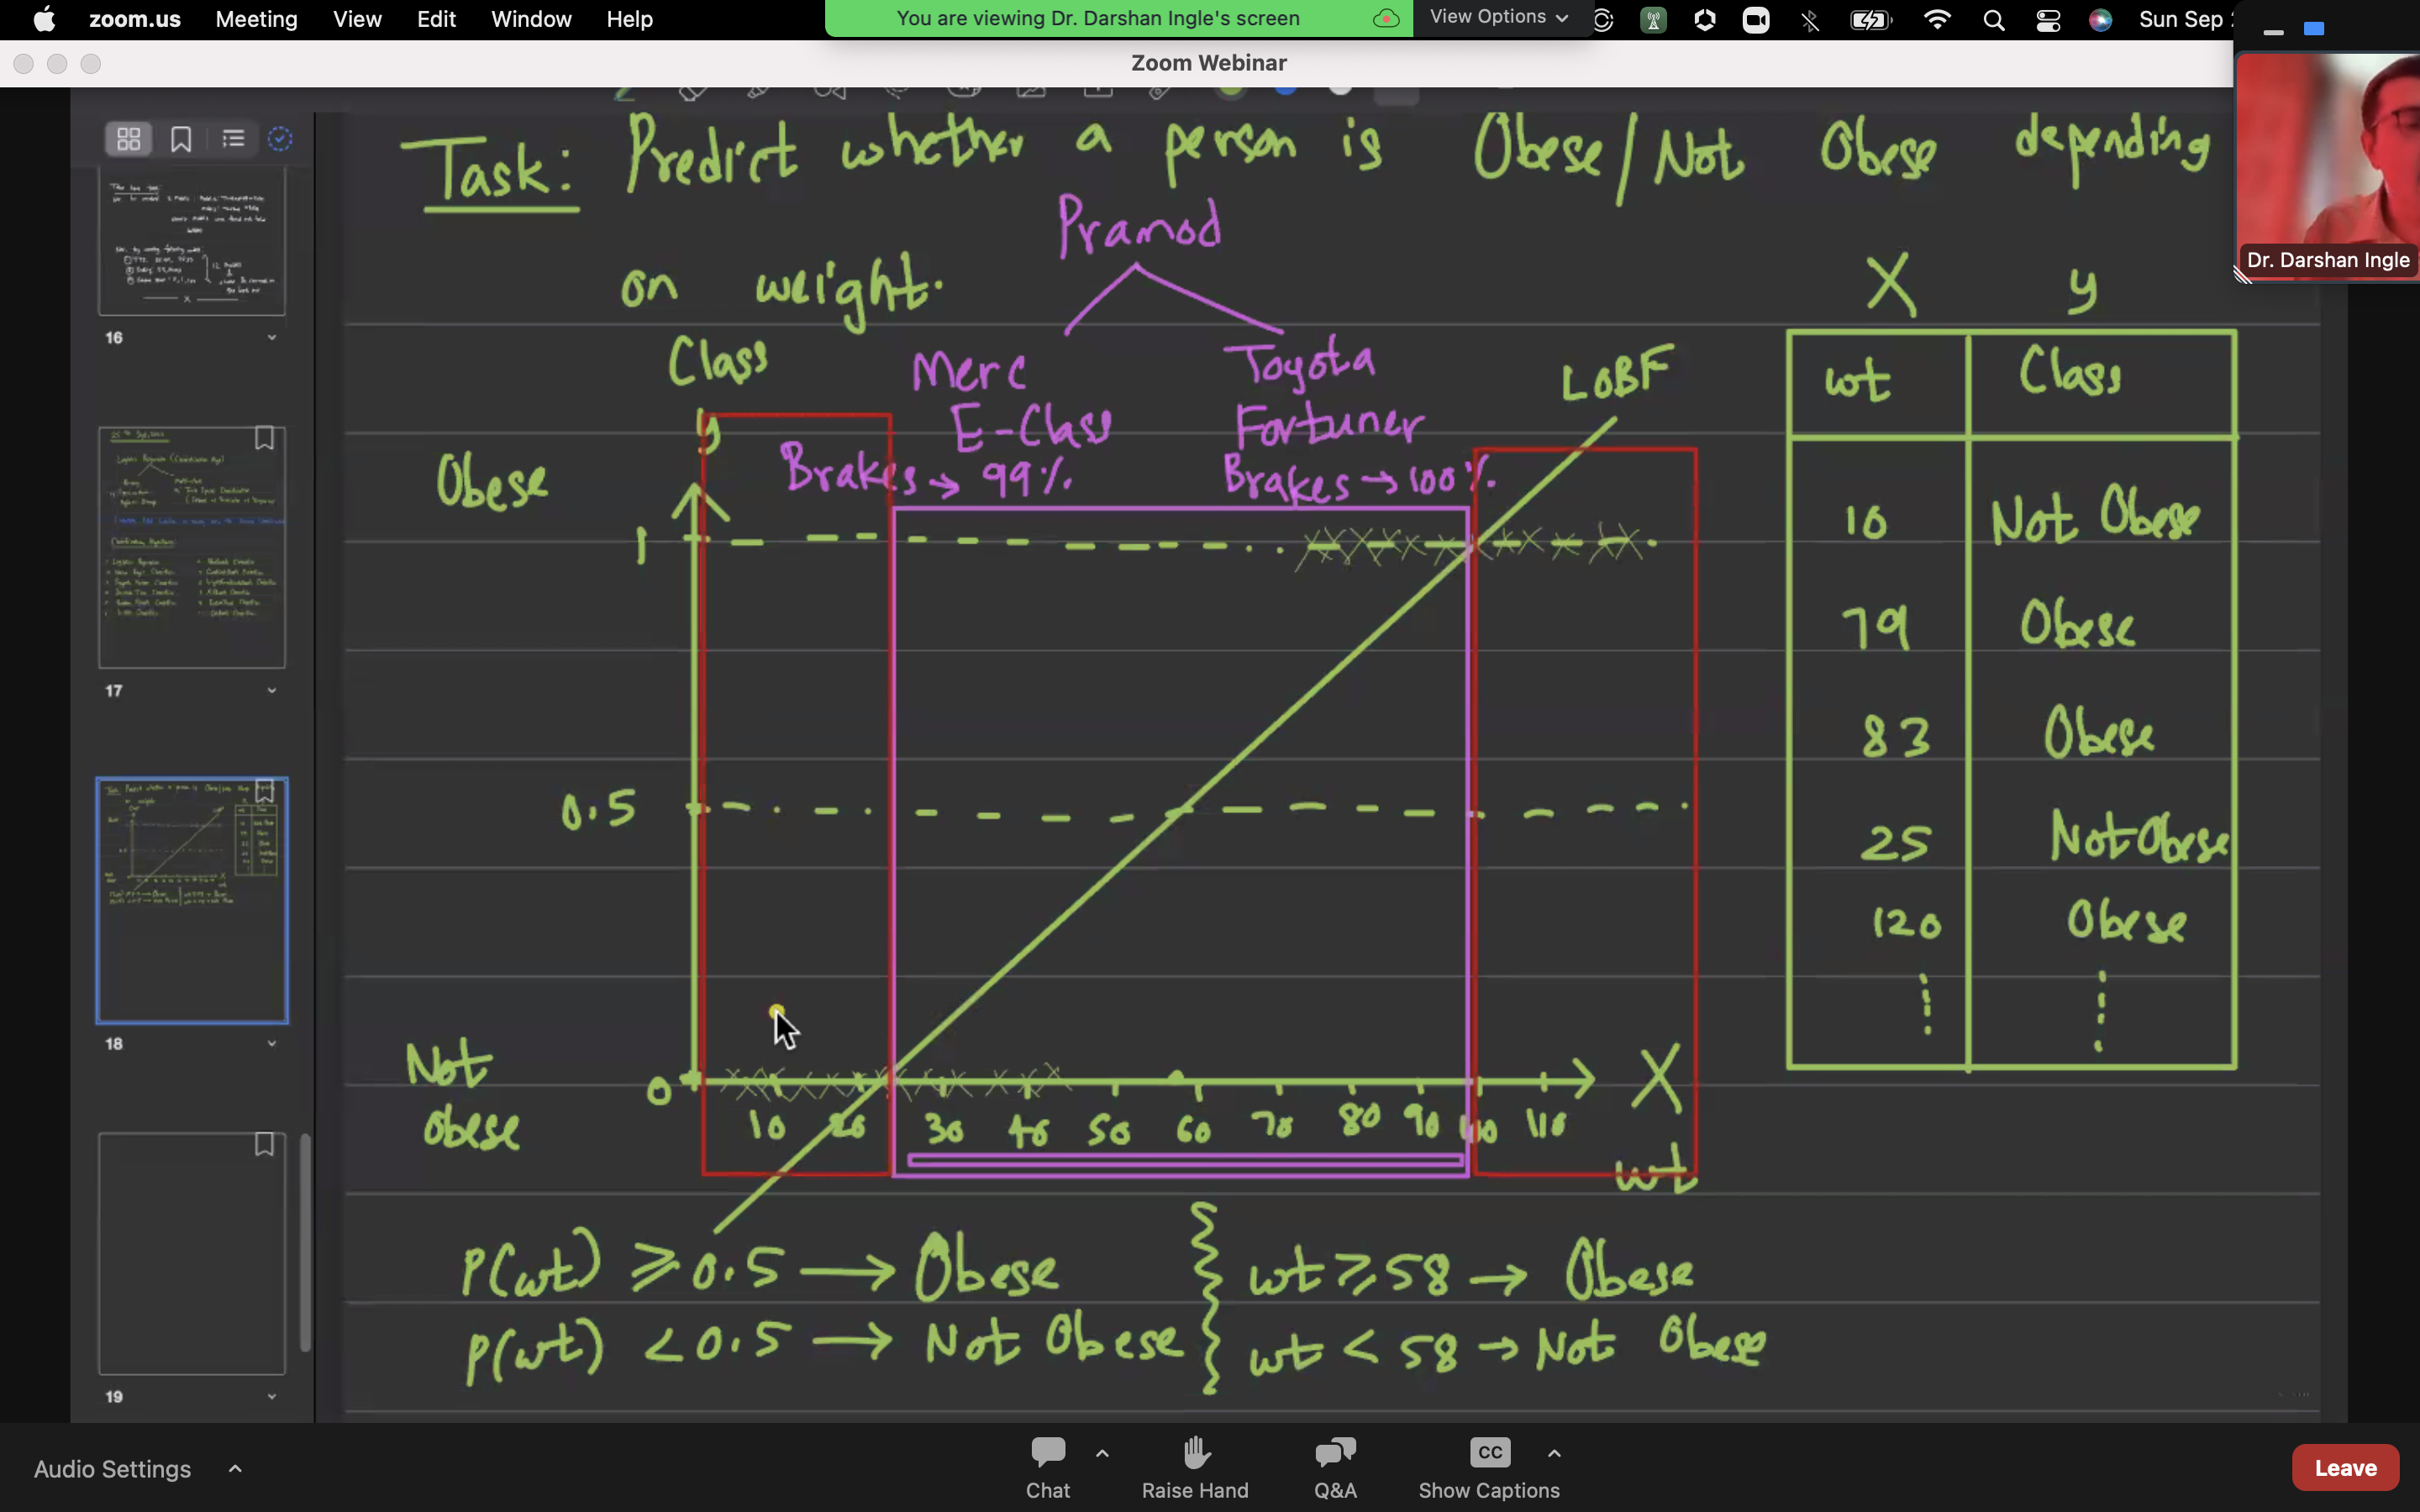 zoom.us Meeting View Edit Window Help
You are viewing Dr. Darshan Ingle's screen
View Options
Sun Sep
Zoom Webinar
Dr. Darshan Ingle
16
17
18
19
Task: Predict whether a person is Obese/Not Obese depending
on weight.
Pramod
Merc
E-Class
Brakes → 99%
Toyota
Fortuner
Brakes → 100%
LOBF
Class
y
Obese
1
0.5
Not
obese
0
10 20 30 40 50 60 70 80 90 100 110
X
wt
X y
wt Class
10 Not Obese
79 Obese
83 Obese
25 Not Obese
120 Obese
P(wt) ≥ 0.5 → Obese
P(wt) < 0.5 → Not Obese
wt ≥ 58 → Obese
wt < 58 → Not Obese
Audio Settings
Chat
Raise Hand
Q&A
CC
Show Captions
Leave